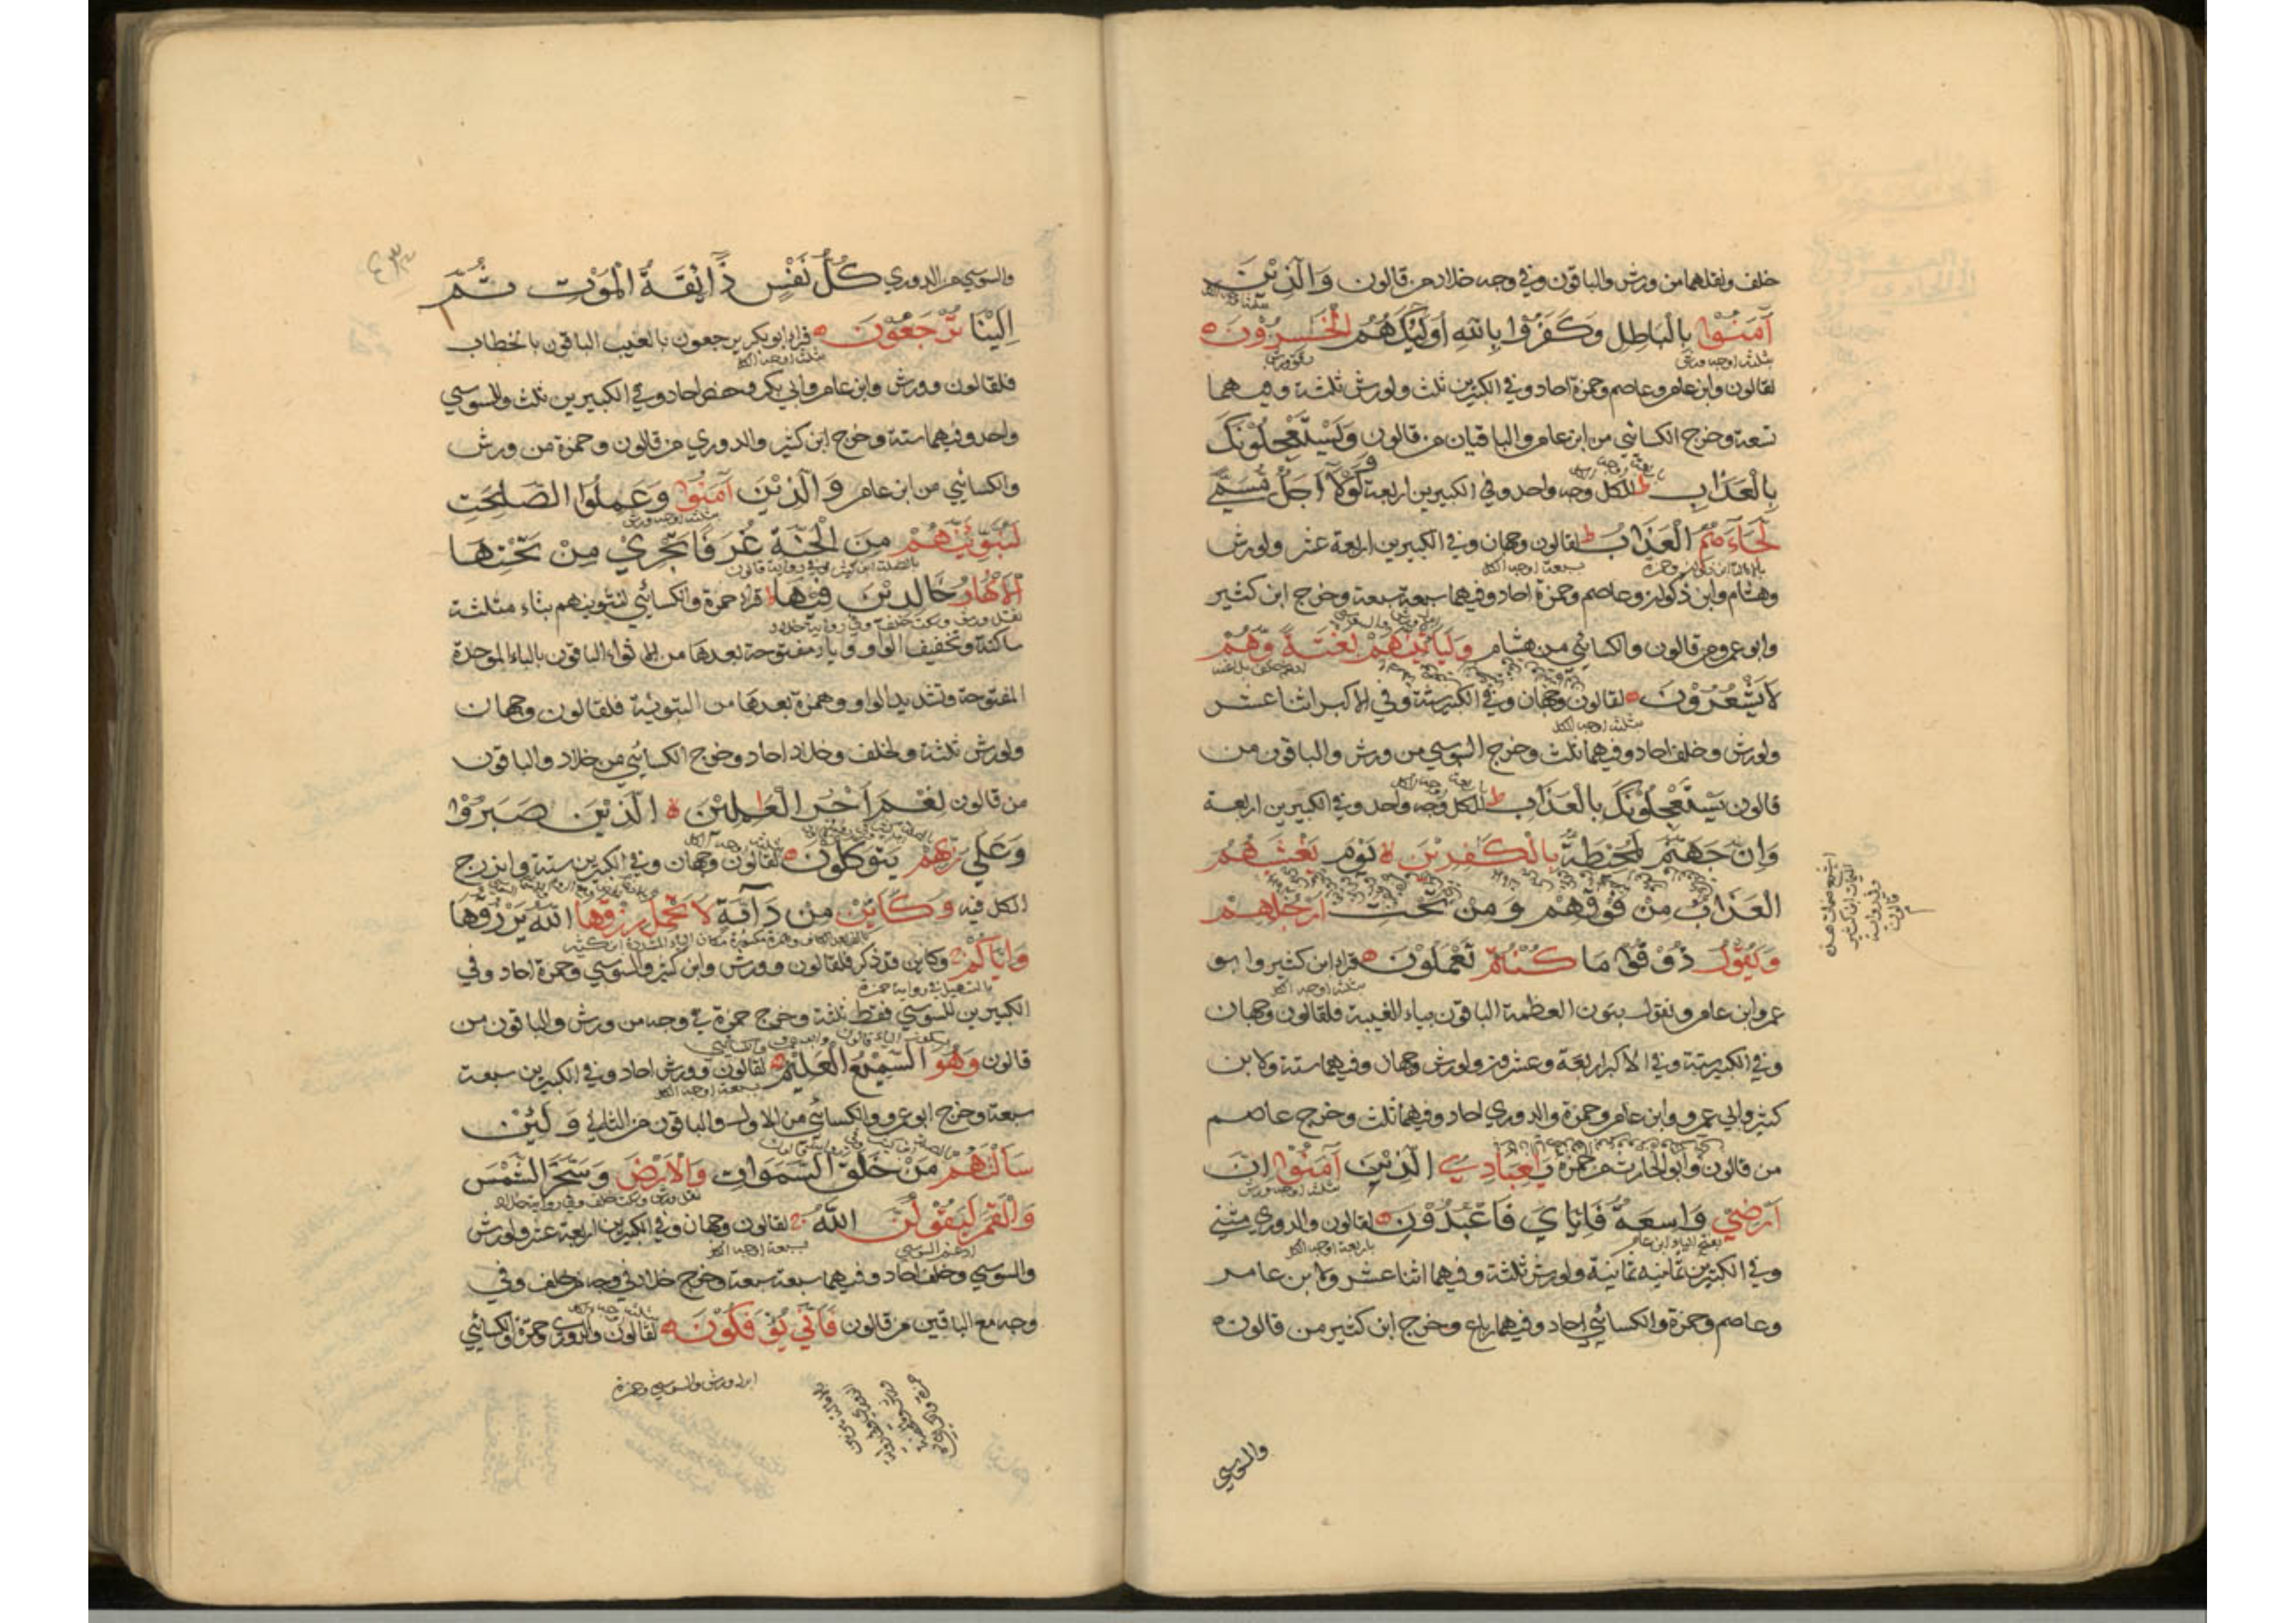 خلف ونقلهما من ورش والباقون وفي وجه خلاد من قالون وَالَّذِيْنَ
آمَنُوْا بِالْبَاطِلِ وَكَفَرُوْا بِاللهِ أُولٰٓئِكَ هُمُ الْخٰسِرُوْنَ
لقالون وابن عامر وعاصم وحمزة احاد وفي الكبيرين ثلث ولورش ثلثة وفيهما
تسعة وخرج الكسائي من ابن عامر والباقيان من قالون وَيَسْتَعْجِلُوْنَكَ
بِالْعَذَابِ ط للكل وجه واحد وفي الكبيرين اربعة وَلَوْلَا أَجَلٌ مُسَمًّى
لَجَاءَهُمُ الْعَذَابُ ط لقالون وجهان وفي الكبيرين اربعة عشر ولورش
وهشام وابن ذكوان وعاصم وحمزة احاد وفيهما سبعة سبعة وخرج ابن كثير
وابو عمرو من قالون والكسائي من هشام وَلَيَأْتِيَنَّهُمْ بَغْتَةً وَهُمْ
لَا يَشْعُرُوْنَ لقالون وجهان وفي الكبير ستة وفي الاكبر اثنا عشر
ولورش وخلف احاد وفيهما ثلث وخرج السوسي من ورش والباقون من
قالون يَسْتَعْجِلُوْنَكَ بِالْعَذَابِ ط للكل وجه واحد وفي الكبيرين اربعة
وَإِنَّ جَهَنَّمَ لَمُحِيْطَةٌ بِالْكٰفِرِيْنَ لا يَوْمَ يَغْشٰهُمُ
الْعَذَابُ مِنْ فَوْقِهِمْ وَمِنْ تَحْتِ أَرْجُلِهِمْ
وَيَقُوْلُ ذُوْقُوْا مَا كُنْتُمْ تَعْمَلُوْنَ قراء ابن كثير وابو
عمرو وابن عامر ونقول بنون العظمة الباقون بياء الغيبة فلقالون وجهان
وفي الكبير ستة وفي الاكبر اربعة وعشرون ولورش وجهان وفيهما ستة ولابن
كثير وابي عمرو وابن عامر وحمزة والدوري احاد وفيهما ثلث وخرج عاصم
من قالون وابو الحارث من حمزة يٰعِبَادِيَ الَّذِيْنَ آمَنُوْا إِنَّ
أَرْضِيْ وَاسِعَةٌ فَإِيَّايَ فَاعْبُدُوْنِ لقالون والدوري مثنى
وفي الكبيرين ثمانية ثمانية ولورش ثلثة وفيهما اثنا عشر ولابن عامر
وعاصم وحمزة والكسائي احاد وفيهما رباع وخرج ابن كثير من قالون
والسوسي
والسوسي من الدوري كُلُّ نَفْسٍ ذَائِقَةُ الْمَوْتِ ثُمَّ
إِلَيْنَا تُرْجَعُوْنَ قراء ابو بكر يرجعون بالغيب الباقون بالخطاب
فلقالون وورش وابن عامر وابي بكر وحفص احاد وفي الكبيرين ثلث وللسوسي
واحد وفيهما ستة وخرج ابن كثير والدوري من قالون وحمزة من ورش
والكسائي من ابن عامر وَالَّذِيْنَ آمَنُوْا وَعَمِلُوا الصّٰلِحٰتِ
لَنُبَوِّئَنَّهُمْ مِنَ الْجَنَّةِ غُرَفًا تَجْرِيْ مِنْ تَحْتِهَا
الْأَنْهَارُ خَالِدِيْنَ فِيْهَا ط قراء حمزة والكسائي لنثوينهم بثاء مثلثة
ساكنة وتخفيف الواو وياء مفتوحة بعدها من الاثواء الباقون بالباء الموحدة
المفتوحة وتشديد الواو وهمزة بعدها من التبوئة فلقالون وجهان
ولورش ثلثة ولخلف وخلاد احاد وخرج الكسائي من خلاد والباقون
من قالون نِعْمَ أَجْرُ الْعٰمِلِيْنَ لا الَّذِيْنَ صَبَرُوْا
وَعَلٰى رَبِّهِمْ يَتَوَكَّلُوْنَ لقالون وجهان وفي الكبيرين ستة واندرج
الكل فيه وَكَأَيِّنْ مِنْ دَابَّةٍ لَا تَحْمِلُ رِزْقَهَا اللهُ يَرْزُقُهَا
وَإِيَّاكُمْ وكاين قد ذكر فلقالون وورش وابن كثير والسوسي وحمزة احاد وفي
الكبيرين للسوسي فقط ثلثة وخرج حمزة في وجه من ورش والباقون من
قالون وَهُوَ السَّمِيْعُ الْعَلِيْمُ لقالون وورش احاد وفي الكبيرين سبعة
سبعة وخرج ابو عمرو والكسائي من الاول والباقون من الثاني وَلَئِنْ
سَأَلْتَهُمْ مَنْ خَلَقَ السَّمَوَاتِ وَالْأَرْضَ وَسَخَّرَ الشَّمْسَ
وَالْقَمَرَ لَيَقُوْلُنَّ اللهُ لقالون وجهان وفي الكبيرين اربعة عشر ولورش
والسوسي وخلف احاد وفيهما سبعة سبعة وخرج خلاد في وجه من خلف وفي
وجه مع الباقين من قالون فَأَنّٰى يُؤْفَكُوْنَ لقالون والدوري وحمزة والكسائي
ابدل ورش والسوسي وحمزة